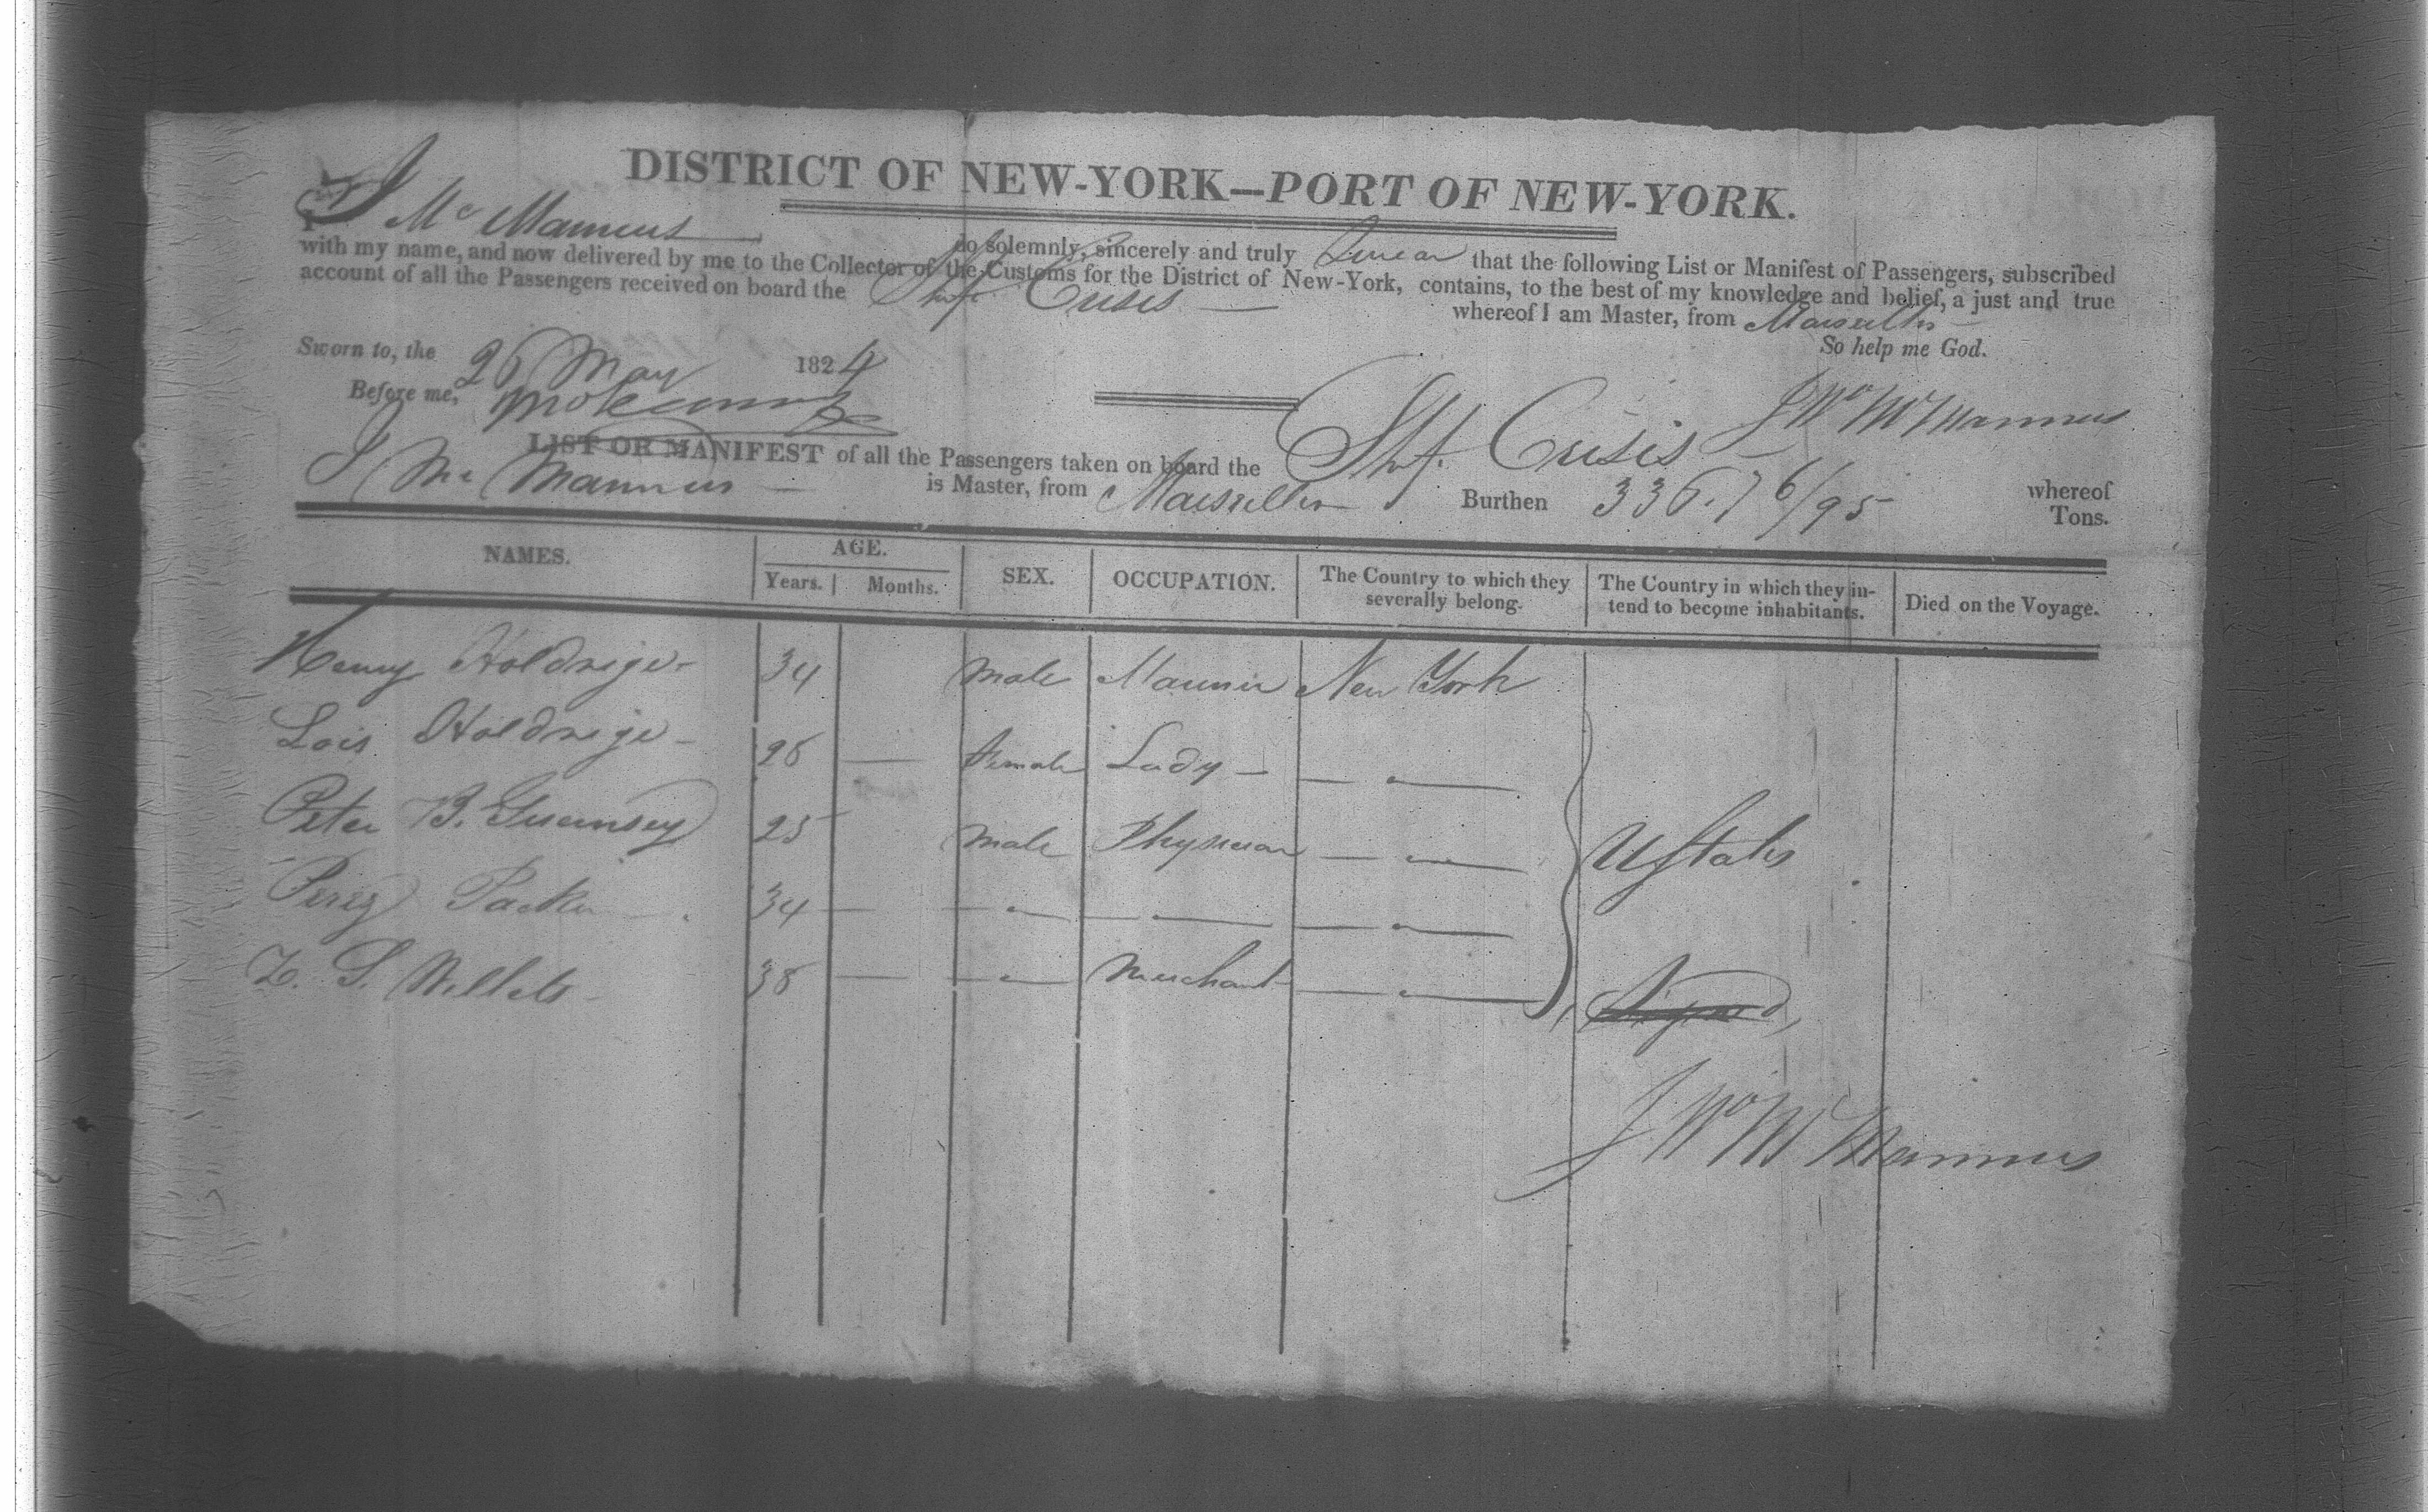 DISTRICT OF NEW-YORK—PORT OF NEW-YORK.
I J Mc Mannus do solemnly, sincerely and truly Swear that the following List or Manifest of Passengers, subscribed
with my name, and now delivered by me to the Collector of the Customs for the District of New-York, contains, to the best of my knowledge and belief, a just and true
account of all the Passengers received on board the Ship Crisis — whereof I am Master, from Marseilles
So help me God.
Sworn to, the 26 May 1824
Before me,
J Wm McMannus
LIST OR MANIFEST of all the Passengers taken on board the Ship Crisis whereof
J Mc Mannus — is Master, from Marseilles Burthen 336.76/95 Tons.
NAMES. AGE. SEX. OCCUPATION. The Country to which they severally belong. The Country in which they intend to become inhabitants. Died on the Voyage.
Years. Months.
Henry Holdrige 34 male Mariner New York
Lois Holdrige 28 — female Lady — — " —
Peter B. Guernsey 25 male Physician — " — U States
Perez Packer 34 — — " — — " — — " —
Z. S. Willets 38 — — " — Merchant — " —
Signed,
J Wm McMannus